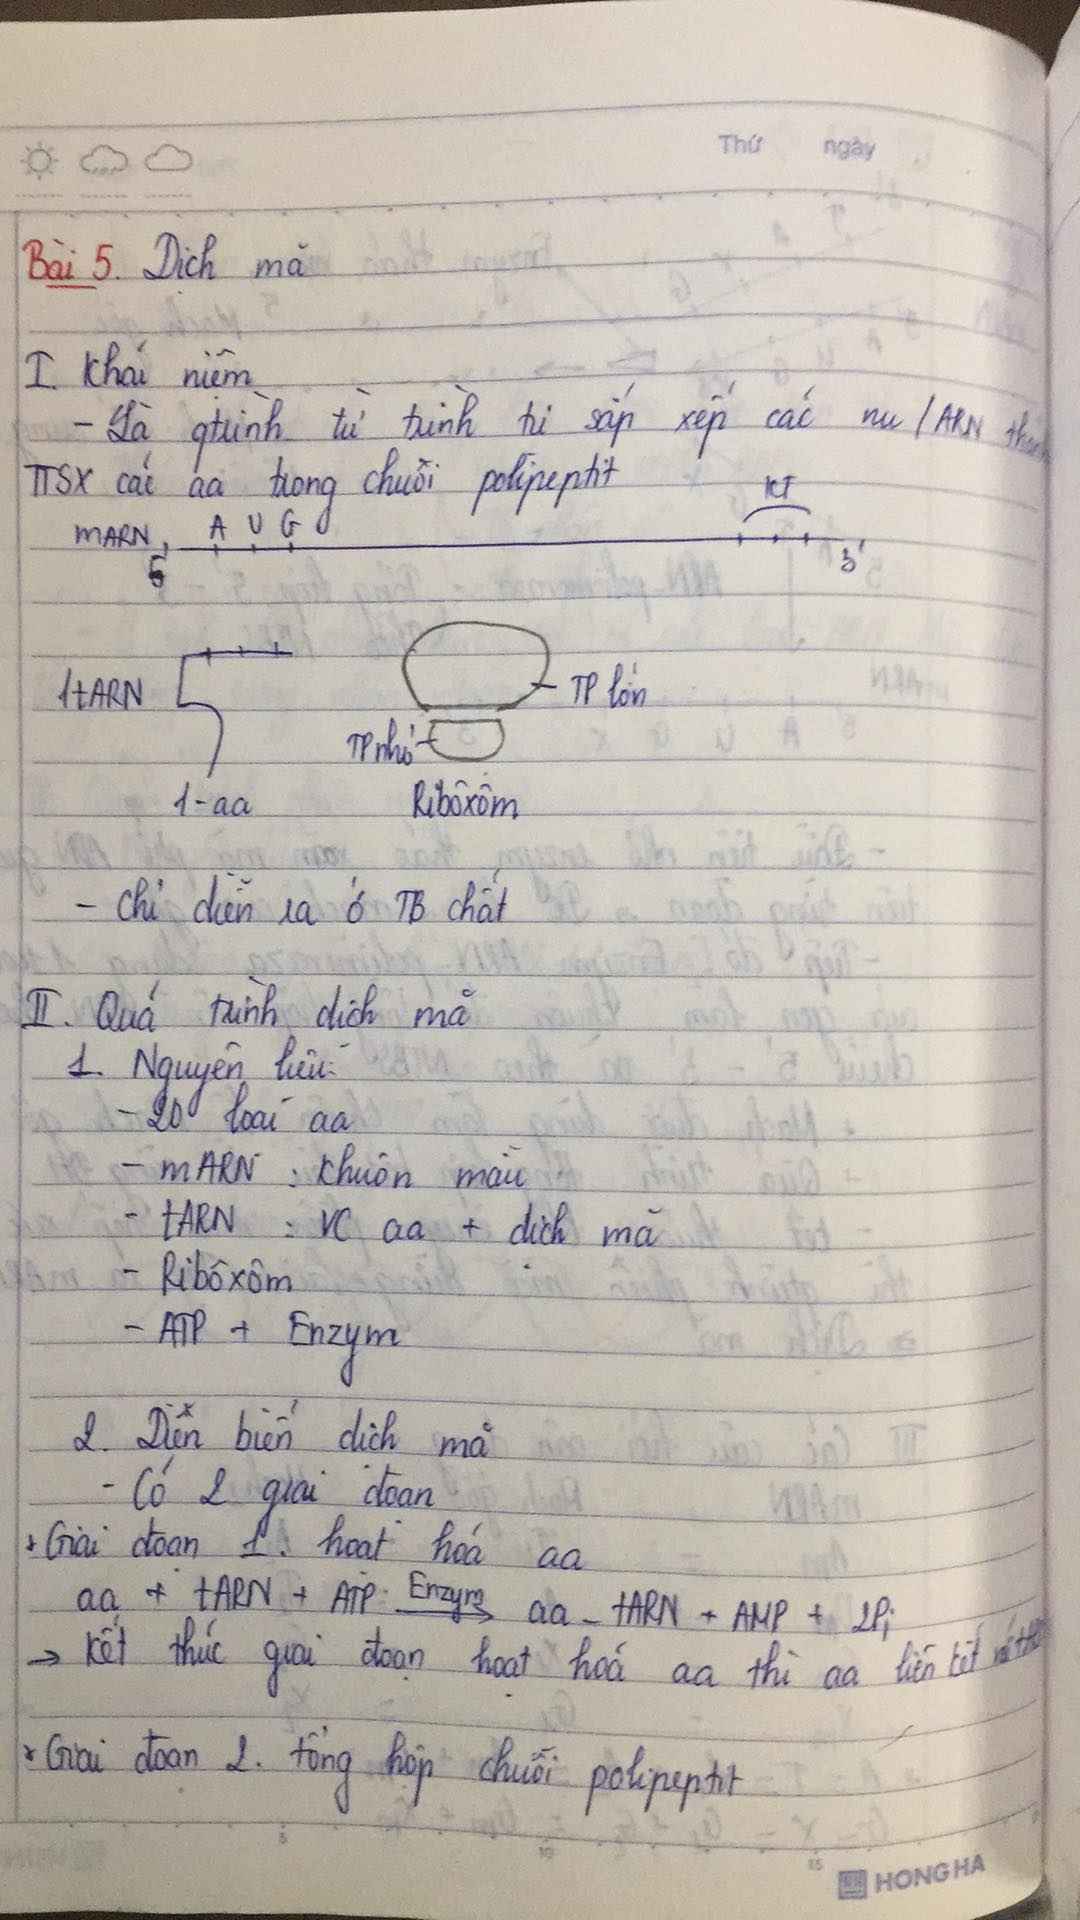 Thứ ngày
Bài 5. Dịch mã
I. Khái niệm
- Là qtrình từ trình tự sắp xếp các nu / ARN
TTSX các aa trong chuỗi polipeptit
KT
mARN A U G
5' 3'
1tARN
TP lớn
TP nhỏ
1-aa Ribôxôm
- Chỉ diễn ra ở TB chất
II. Quá trình dịch mã
1. Nguyên liệu:
- 20 loại aa
- mARN : khuôn mẫu
- tARN : VC aa + dịch mã
- Ribôxôm
- ATP + Enzym
2. Diễn biến dịch mã
- Có 2 giai đoạn
* Giai đoạn 1. hoạt hoá aa
aa + tARN + ATP Enzym → aa - tARN + AMP + 2Pi
→ Kết thúc giai đoạn hoạt hoá aa thì aa liên kết với
* Giai đoạn 2. tổng hợp chuỗi polipeptit
HONG HA